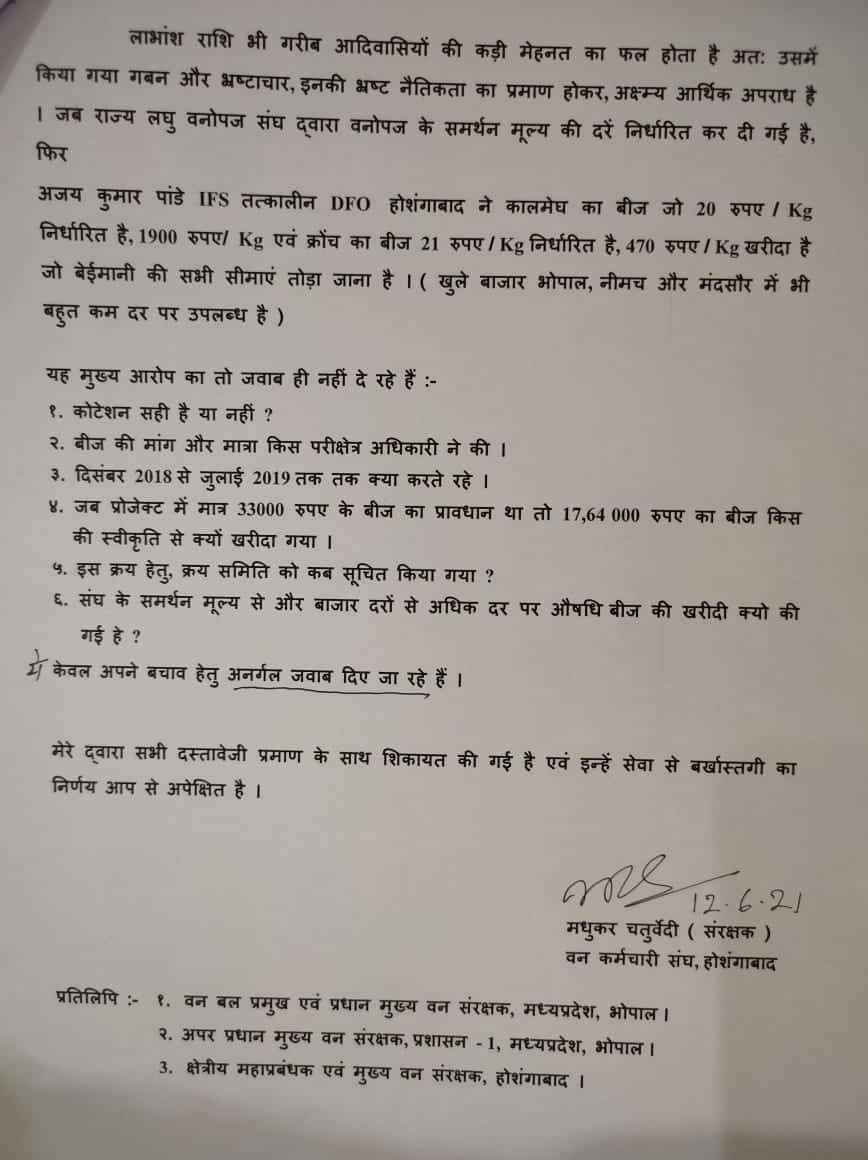 लाभांश राशि भी गरीब आदिवासियों की कड़ी मेहनत का फल होता है अत: उसमें
किया गया गबन और भ्रष्टाचार, इनकी भ्रष्ट नैतिकता का प्रमाण होकर, अक्ष्म्य आर्थिक अपराध है
। जब राज्य लघु वनोपज संघ द्वारा वनोपज के समर्थन मूल्य की दरें निर्धारित कर दी गई है,
फिर
अजय कुमार पांडे IFS तत्कालीन DFO होशंगाबाद ने कालमेघ का बीज जो 20 रुपए / Kg
निर्धारित है, 1900 रुपए/ Kg एवं क्रोंच का बीज 21 रुपए / Kg निर्धारित है, 470 रुपए / Kg खरीदा है
जो बेईमानी की सभी सीमाएं तोड़ा जाना है । ( खुले बाजार भोपाल, नीमच और मंदसौर में भी
बहुत कम दर पर उपलब्ध है )
यह मुख्य आरोप का तो जवाब ही नहीं दे रहे हैं :-
१. कोटेशन सही है या नहीं ?
२. बीज की मांग और मात्रा किस परीक्षेत्र अधिकारी ने की ।
३. दिसंबर 2018 से जुलाई 2019 तक तक क्या करते रहे ।
४. जब प्रोजेक्ट में मात्र 33000 रुपए के बीज का प्रावधान था तो 17,64 000 रुपए का बीज किस
की स्वीकृति से क्यों खरीदा गया ।
५. इस क्रय हेतु, क्रय समिति को कब सूचित किया गया ?
६. संघ के समर्थन मूल्य से और बाजार दरों से अधिक दर पर औषधि बीज की खरीदी क्यो की
गई हे ?
ये केवल अपने बचाव हेतु अनर्गल जवाब दिए जा रहे हैं ।
मेरे द्वारा सभी दस्तावेजी प्रमाण के साथ शिकायत की गई है एवं इन्हें सेवा से बर्खास्तगी का
निर्णय आप से अपेक्षित है ।
12.6.21
मधुकर चतुर्वेदी ( संरक्षक )
वन कर्मचारी संघ, होशंगाबाद
प्रतिलिपि :- १. वन बल प्रमुख एवं प्रधान मुख्य वन संरक्षक, मध्यप्रदेश, भोपाल ।
२. अपर प्रधान मुख्य वन संरक्षक, प्रशासन - 1, मध्यप्रदेश, भोपाल ।
3. क्षेत्रीय महाप्रबंधक एवं मुख्य वन संरक्षक, होशंगाबाद ।